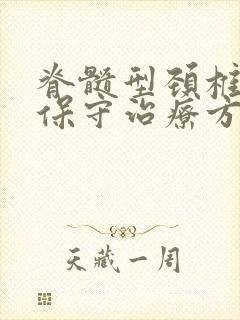 脊髓型颈椎
保守治疗方
天藏一周